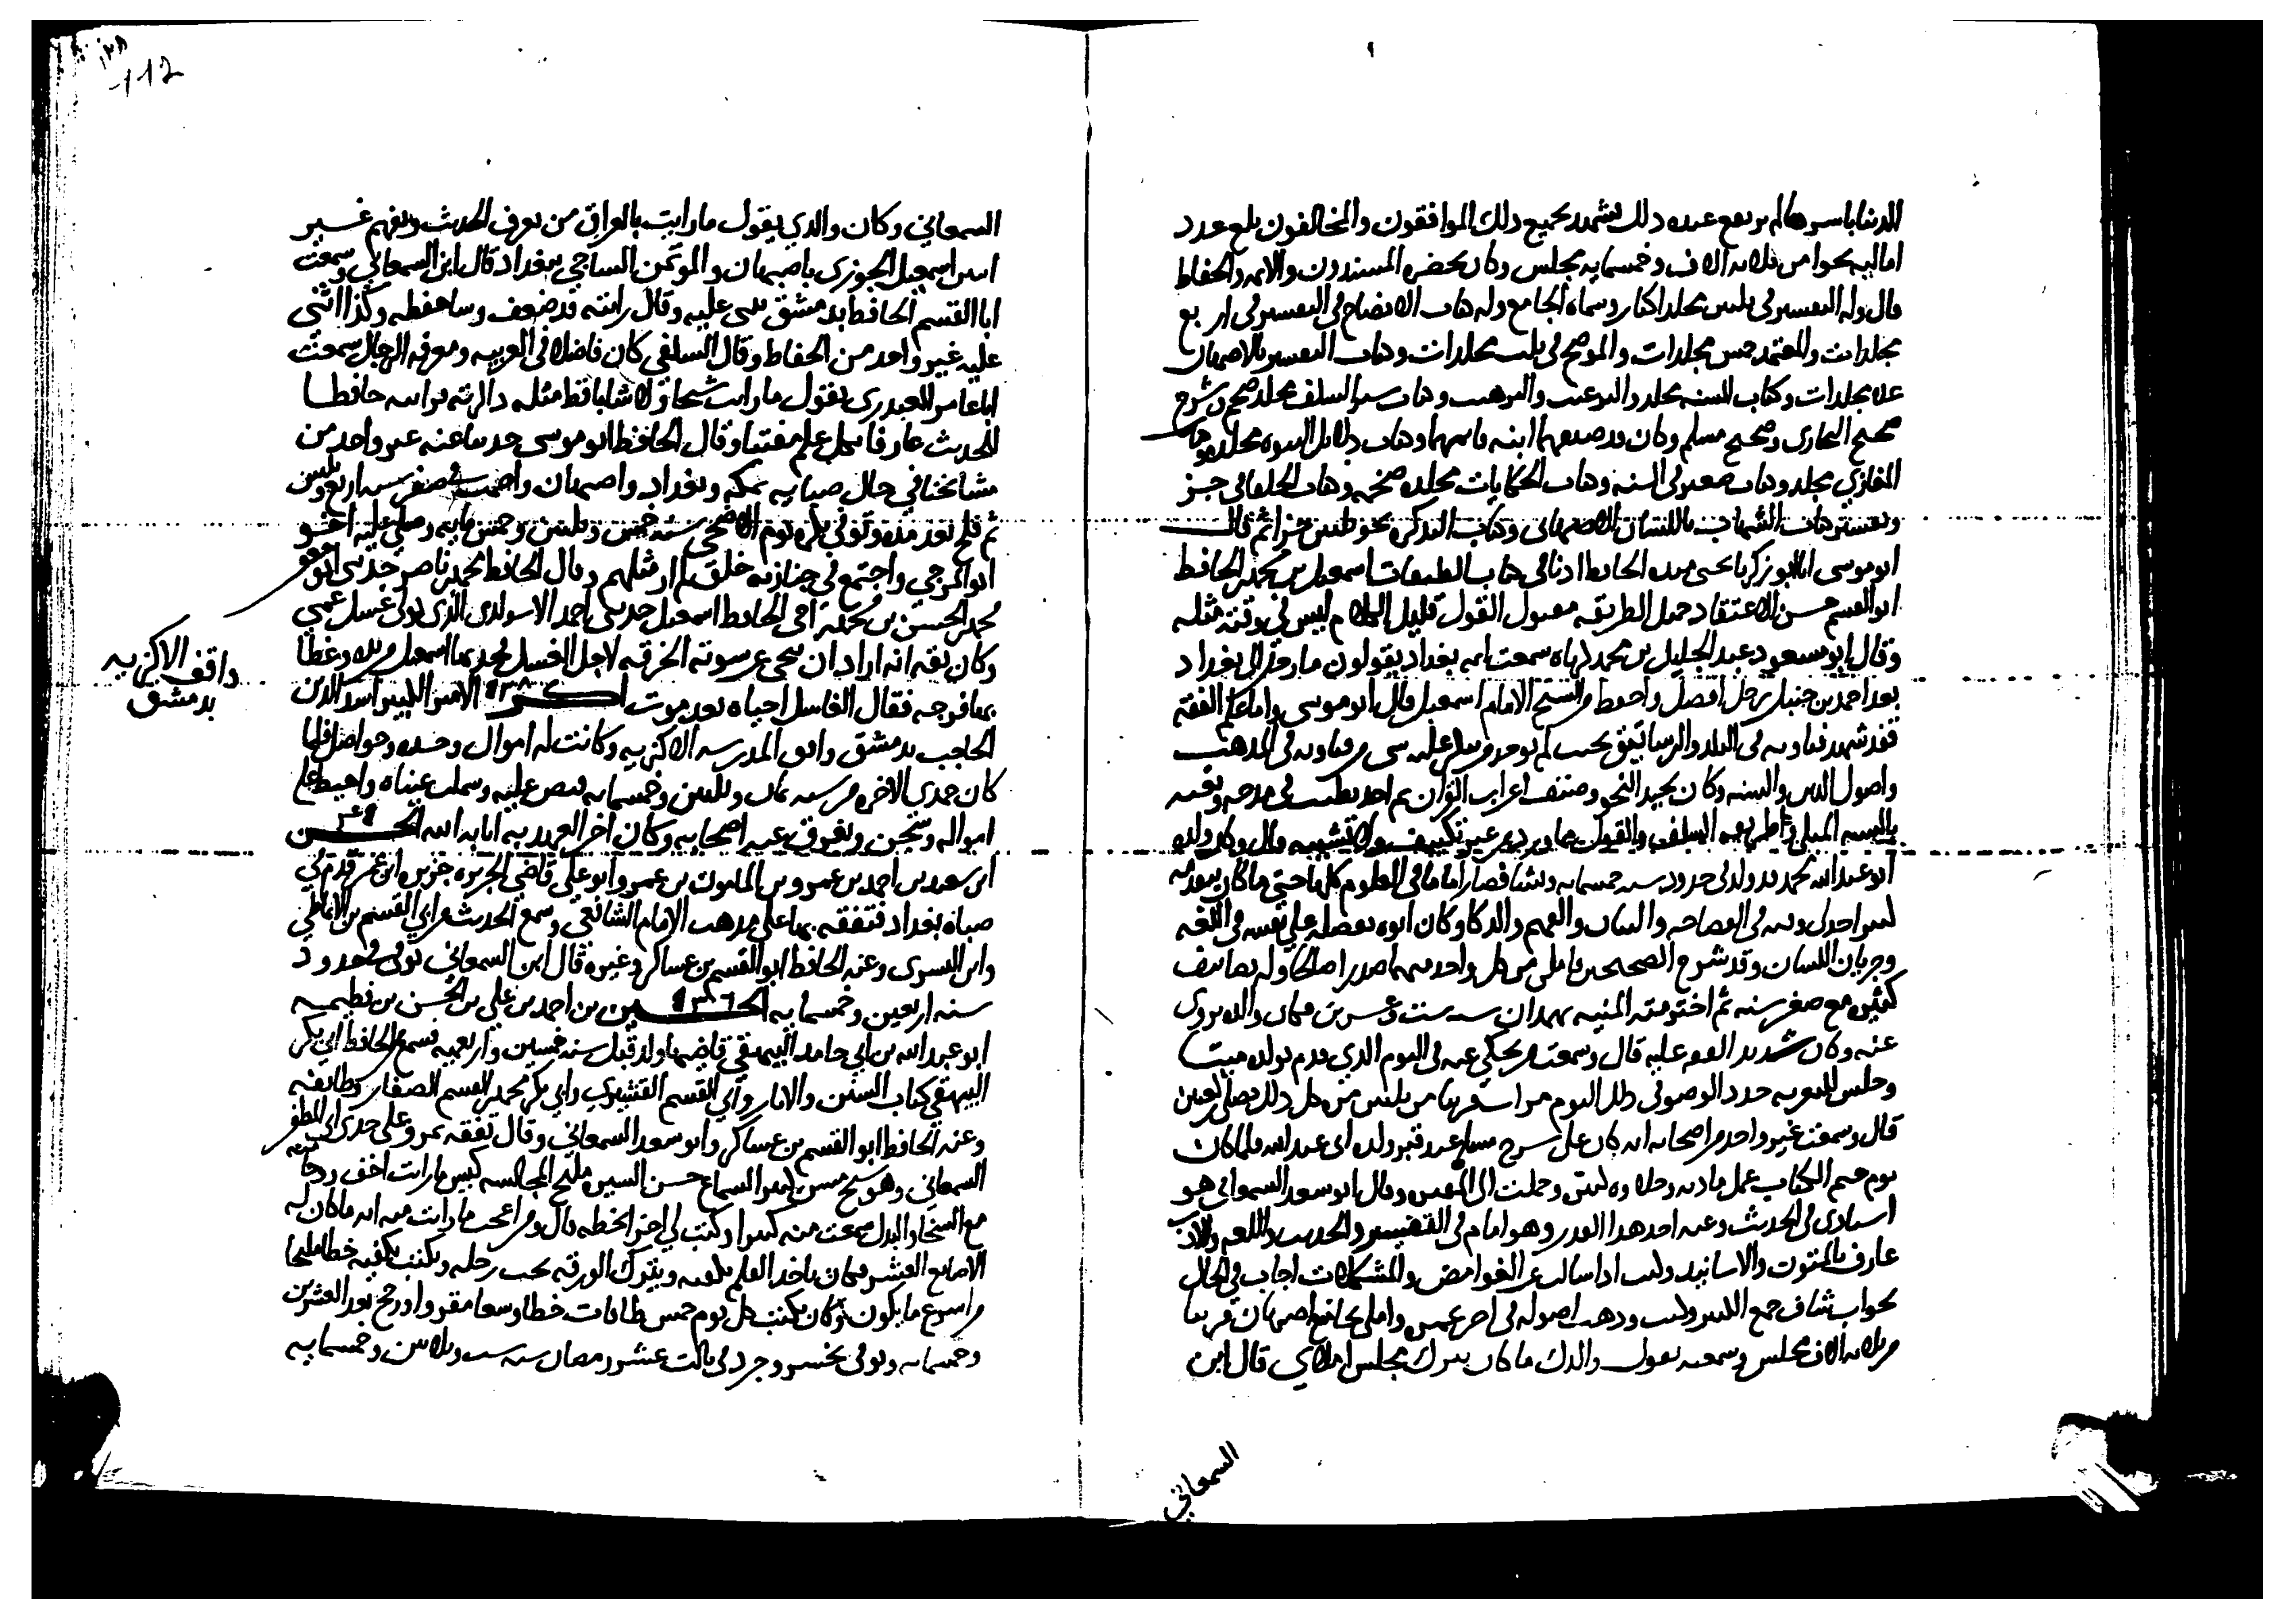 الدنيا باسرها لم يرتفع عنده ذلك يشهد بجميع ذلك الموافقون والمخالفون بلغ عدد
اماليه نحوا من ثلاثه الاف وخمسمايه مجلس وكان يحضره المسندون والايمه والحفاظ
قال وله التفسير في ثلثين مجلدا كبار وسماه الجامع وله كتاب الايضاح في التفسير في اربع
مجلدات والمعتمد خمس مجلدات والموضح في ثلث مجلدات وكتاب التفسير بالاصبهاني
عده مجلدات وكتاب السنه مجلد والترغيب والترهيب وكتاب سير السلف مجلد ضخم وشرح
صحيح البخاري وصحيح مسلم وكان قد صنفهما ابنه فاتمهما وكتاب دلايل النبوه مجلد وكتاب
المغازي مجلد وكتاب صغير في السنه وكتاب الحكايات مجلده ضخمه وكتاب الخلفا في جز
وتفسير كتاب الشهاب باللسان الاصبهاني وكتاب التذكره نحو ثلثين جزا ثم قال
ابو موسى ابنا ابو زكريا يحيى بن منده الحافظ اذنا في كتاب الطبقات اسمعيل بن محمد الحافظ
ابو القسم حسن الاعتقاد جميل الطريقه مقبول القول قليل الكلام ليس في وقته مثله
وقال ابو مسعود عبد الجليل بن محمد كوتاه سمعت ايمه بغداد يقولون ما رحل الى بغداد
بعد احمد بن حنبل رجل افضل واحفظ من الشيخ الامام اسمعيل قال ابو موسى واما علم الفقه
فقد شهر فتاويه في البلد والرساتيق بحيث لم يوجد من ينكر عليه شي من فتاويه في المذهب
واصول الدين والسنه وكان يجيد النحو وصنف اعراب القران ثم اخذ يطنب في مدحه
ابو عبد الله محمد قد ولد في حدود سنه خمسمايه ونشا فصار اماما في العلوم كلها حتى ما كان يتقدمه
كبير احد في وقته في الفصاحه والبيان والفهم والذكا وكان ابوه يفضله على نفسه في اللغه
وجريان اللسان وقد شرح الصحيحين فاملى من كل واحد منهما صدرا صالحا وله تصانيف
كثيره مع صغر سنه ثم اخترمته المنيه بهمدان سنه ست وعشرين وكان والده يروي
عنه وكان شديد الفقد عليه قال وسمعت من يحكي عنه في اليوم الذي قدم بولده ميتا
وجلس للتعزيه جدد الوضو في ذلك اليوم مرات قريبا من ثلثين مره كل ذلك يصلي ركعتين
قال وسمعت غير واحد من اصحابه انه كان يملي شرح مسلم عند قبر ولده ابي عبد الله فلما كان
يوم ختم الكتاب عمل مادبه وحلاوه كثيره وحملت الى المقبره وقال ابو سعد السمعاني هو
استاذي في الحديث وعنه اخذ هذا القدر وهو امام في التفسير والحديث واللغه والادب
عارف بالمتون والاسانيد وكنت اذا سالته عن الغوامض والمشكلات اجاب في الحال
بجواب شاف جمع الكثير وكتب وذهب اصوله في اخر عمره واملى بجامع اصبهان قريبا
من ثلاثه الاف مجلس وسمعته يقول والدك ما كان يترك مجلس املاي قال ابن
السمعاني
السمعاني وكان والدي يقول ما رايت بالعراق من يعرف الحديث ويفهم غير
اثنين اسمعيل الجوزي باصبهان والموتمن الساجي ببغداد قال ابن السمعاني وسمعت
ابا القسم الحافظ بدمشق يثني عليه وقال رايته قد ضعف وسا حفظه وكذا اثنى
عليه غير واحد من الحفاظ وقال السلفي كان فاضلا في العربيه ومعرفه الرجال سمعت
ابا عامر العبدري يقول ما رايت شيخا ولا شابا قط مثله ذاكرته فرايته حافظا
للحديث عارفا بكل علم مفتيا وقال الحافظ ابو موسى حدثنا عنه غير واحد من
مشايخنا في حال صباه بمكه وبغداد واصبهان واصمت في صفر سنه اربع وثلثين
ثم فلج بعد مده وتوفي بكره يوم الاضحى سنه خمس وثلثين وخمس مايه وصلى عليه اخوه
ابو المرجي واجتمع في جنازته خلق لم ار مثلهم وقال الحافظ محمد بن ناصر حدثني ابو جعفر
محمد بن الحسن بن محمد ابن اخي الحافظ اسمعيل حدثني احمد الاسواري الذي تولى غسل عمي
وكان ثقه انه اراد ان ينحي عن سوته الخرقه لاجل الغسل فجذبها اسمعيل من يده وغطا
بها فرجه فقال الغاسل احياه بعد موت اكز ٥٣٨ الامير الكبير اسد الدين
الحاجب بدمشق واقف المدرسه الاكزيه وكانت له اموال وحشمه وحواصل فلما
كان جمدي الاخره من سنه ثمان وثلثين وخمسمايه قبض عليه وسملت عيناه واحيط على
امواله وسجن وتفرق عنه اصحابه وكان اخر العهد به انا به الله الحسن
ابن سعد بن احمد بن عمرو بن المامون بن عمرو ابو علي قاضي الجزيره جزيره ابن عمر قدم في
صباه بغداد فتفقه بها على مذهب الامام الشافعي وسمع الحديث من ابي القسم بن الانماطي
وابن البسري وعنه الحافظ ابو القسم بن عساكر وغيره قال ابن السمعاني توفي في حدود
سنه اربعين وخمسمايه الحسين ٥٣٦ بن احمد بن علي بن الحسن بن فطيمه
ابو عبد الله بن ابي حامد البيهقي قاضيها ولد قبل سنه خمسين واربعمايه فسمع من الحافظ ابي بكر
البيهقي كتاب السنن والاثار وابي القسم القشيري وابي بكر محمد بن القسم الصفار وطايفه
وعنه الحافظ ابو القسم بن عساكر وابو سعد السمعاني وقال تفقه بمرو على جدي ابي المظفر
السمعاني وهو شيخ مسن كثير السماع حسن السيره مليح المجالسه كيس ما رايت اخف روحا منه
مع السخا والبذل سمعت منه كثيرا وكتب لي اجزا بخطه قال ومن اعجب ما رايت منه انه ما كان له
الاصابع العشر فكان ياخذ القلم بكفيه ويترك الورقه تحت رجله ويكتب بكفيه خطا مليحا
من اسرع ما يكون وكان يكتب كل يوم خمس طاقات خطا وسعا مقروا ورجع بعد العشرين
وخمسمايه وتوفي بخسروجرد في ثالث عشر رمضان سنه ست وثلاثين وخمسمايه
واقف الاكزيه
بدمشق
112